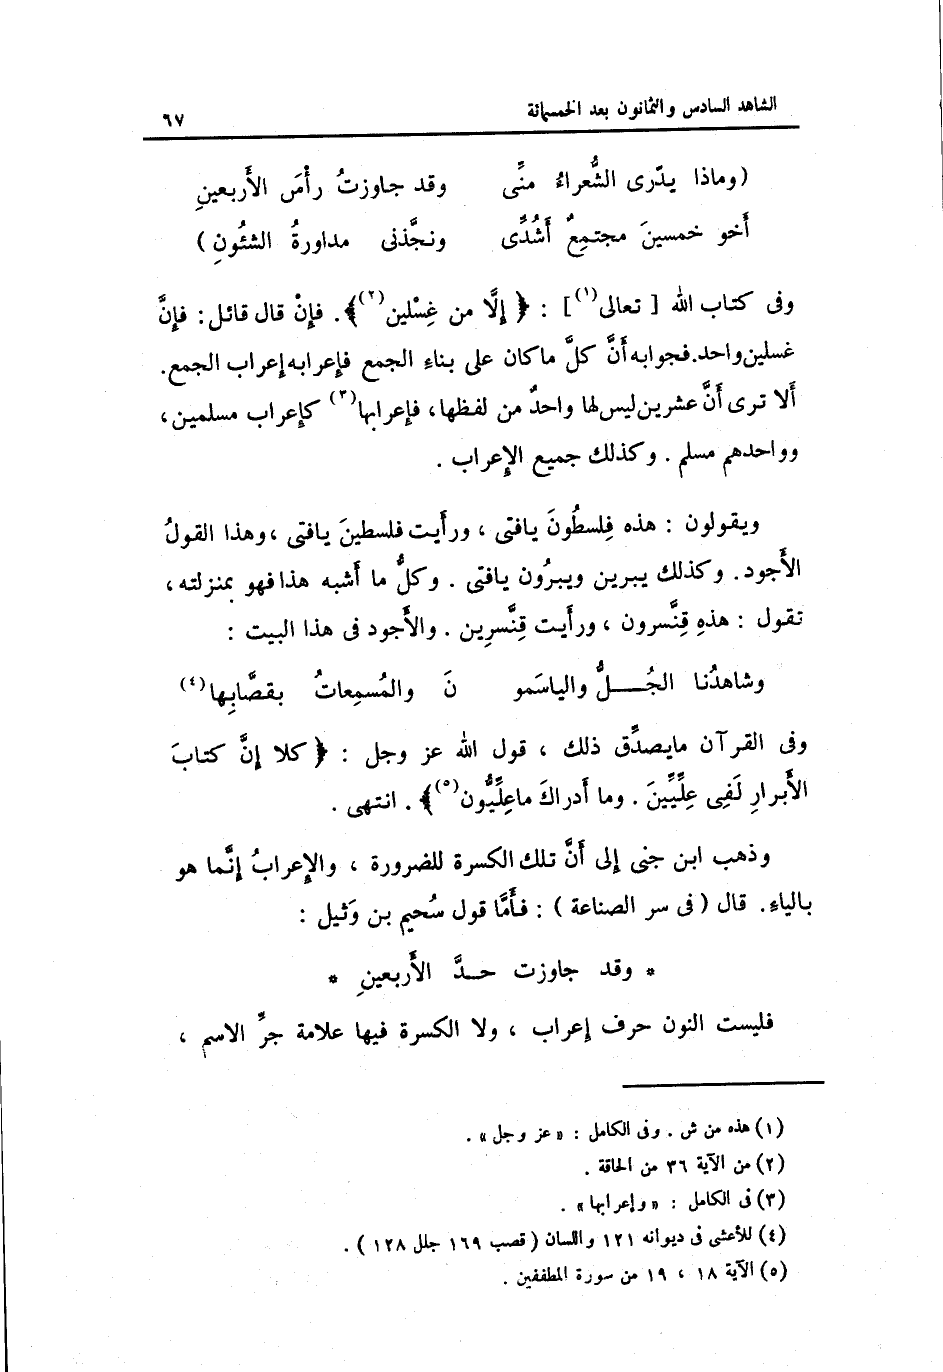 الشاهد السادس والثمانون بعد الخمسمائة ٦٧
(وماذا يدّرى الشُّعراءُ منِّى وقد جاوزتُ رأْسَ الأَربعينِ
أَخو خمسينَ مجتمِعٌ أَشُدِّى ونجَّذنى مداورةُ الشئُونِ)
وفى كتاب الله [ تعالى(١) ] : ﴿ إِلَّا من غِسْلين(٢)﴾. فإِنْ قال قائل: فإِنَّ
غسلين واحد. فجوابه أَنَّ كلَّ ما كان على بناءِ الجمع فإِعرابه إِعراب الجمع.
أَلا ترى أَنَّ عشرين ليس لها واحدٌ من لفظها، فإِعرابها(٣) كإِعراب مسلمين،
وواحدهم مسلم . وكذلك جميع الإِعراب .
ويقولون : هذه فِلسطُونَ يافتى ، ورأَيت فلسطينَ يافتى ، وهذا القولُ
الأَجود. وكذلك يبرين ويبرُون يافتى . وكلُّ ما أَشبه هذا فهو بمنزلته،
تقول : هذهِ قِنَّسرون ، ورأَيت قِنَّسرِين . والأَجود فى هذا البيت :
وشاهدُنا الجُـــلُّ والياسَمو نَ والمُسمِعاتُ بقصَّابِها(٤)
وفى القرآن مايصدِّق ذلك ، قول الله عز وجل : ﴿ كلا إِنَّ كتابَ
الأَبرارِ لَفِى عِلِّيِّينَ . وما أَدراكَ ماعِلِّيُّون(٥)﴾ . انتهى .
وذهب ابن جنى إلى أَنَّ تلك الكسرة للضرورة ، والإِعرابُ إِنَّما هو
بالياءِ. قال (فى سر الصناعة ) : فأَمَّا قول سُحيم بن وَثيل :
* وقد جاوزت حـدَّ الأَربعينِ *
فليست النون حرف إِعراب ، ولا الكسرة فيها علامة جرِّ الاسم ،
(١) هذه من ش . وفى الكامل : « عز وجل» .
(٢) من الآية ٣٦ من الحاقة .
(٣) فى الكامل : « وإعرابها» .
(٤) للأعشى فى ديوانه ١٢١ واللسان (قصب ١٦٩ جلل ١٢٨ ) .
(٥) الآية ١٨ ، ١٩ من سورة المطففين .